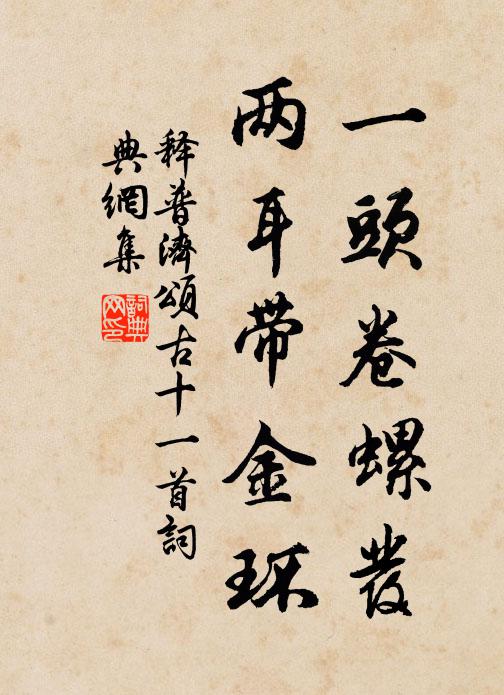 一頭卷螺發
两耳带金环
釋普濟頌古十一首詞
典網集
詞典網印